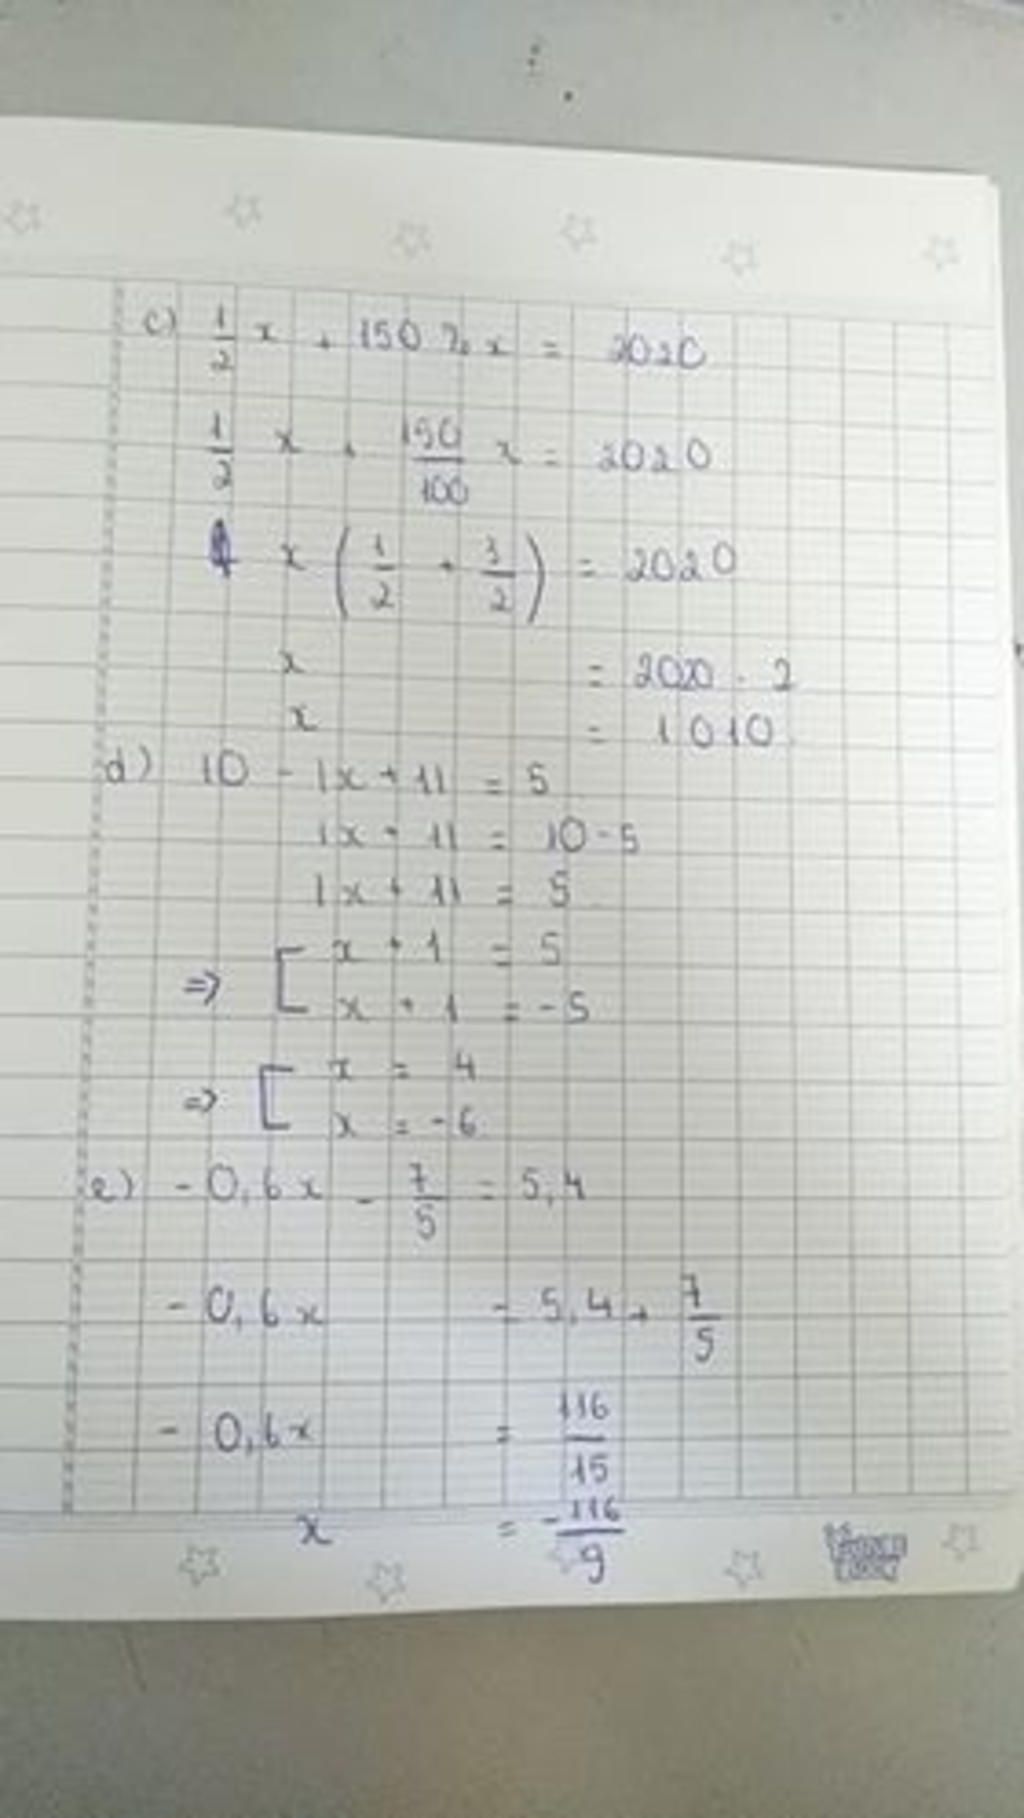 c) 1/2 x + 150% x = 2020
1/2 x + 150/100 x = 2020
x (1/2 + 3/2) = 2020
x = 2020 : 2
x = 1010
d) 10 - |x + 1| = 5
|x + 1| = 10 - 5
|x + 1| = 5
=> [ x + 1 = 5
x + 1 = -5
=> [ x = 4
x = -6
e) -0,6x - 7/5 = 5,4
-0,6x = 5,4 + 7/5
-0,6x = 116/15
x = -116/9